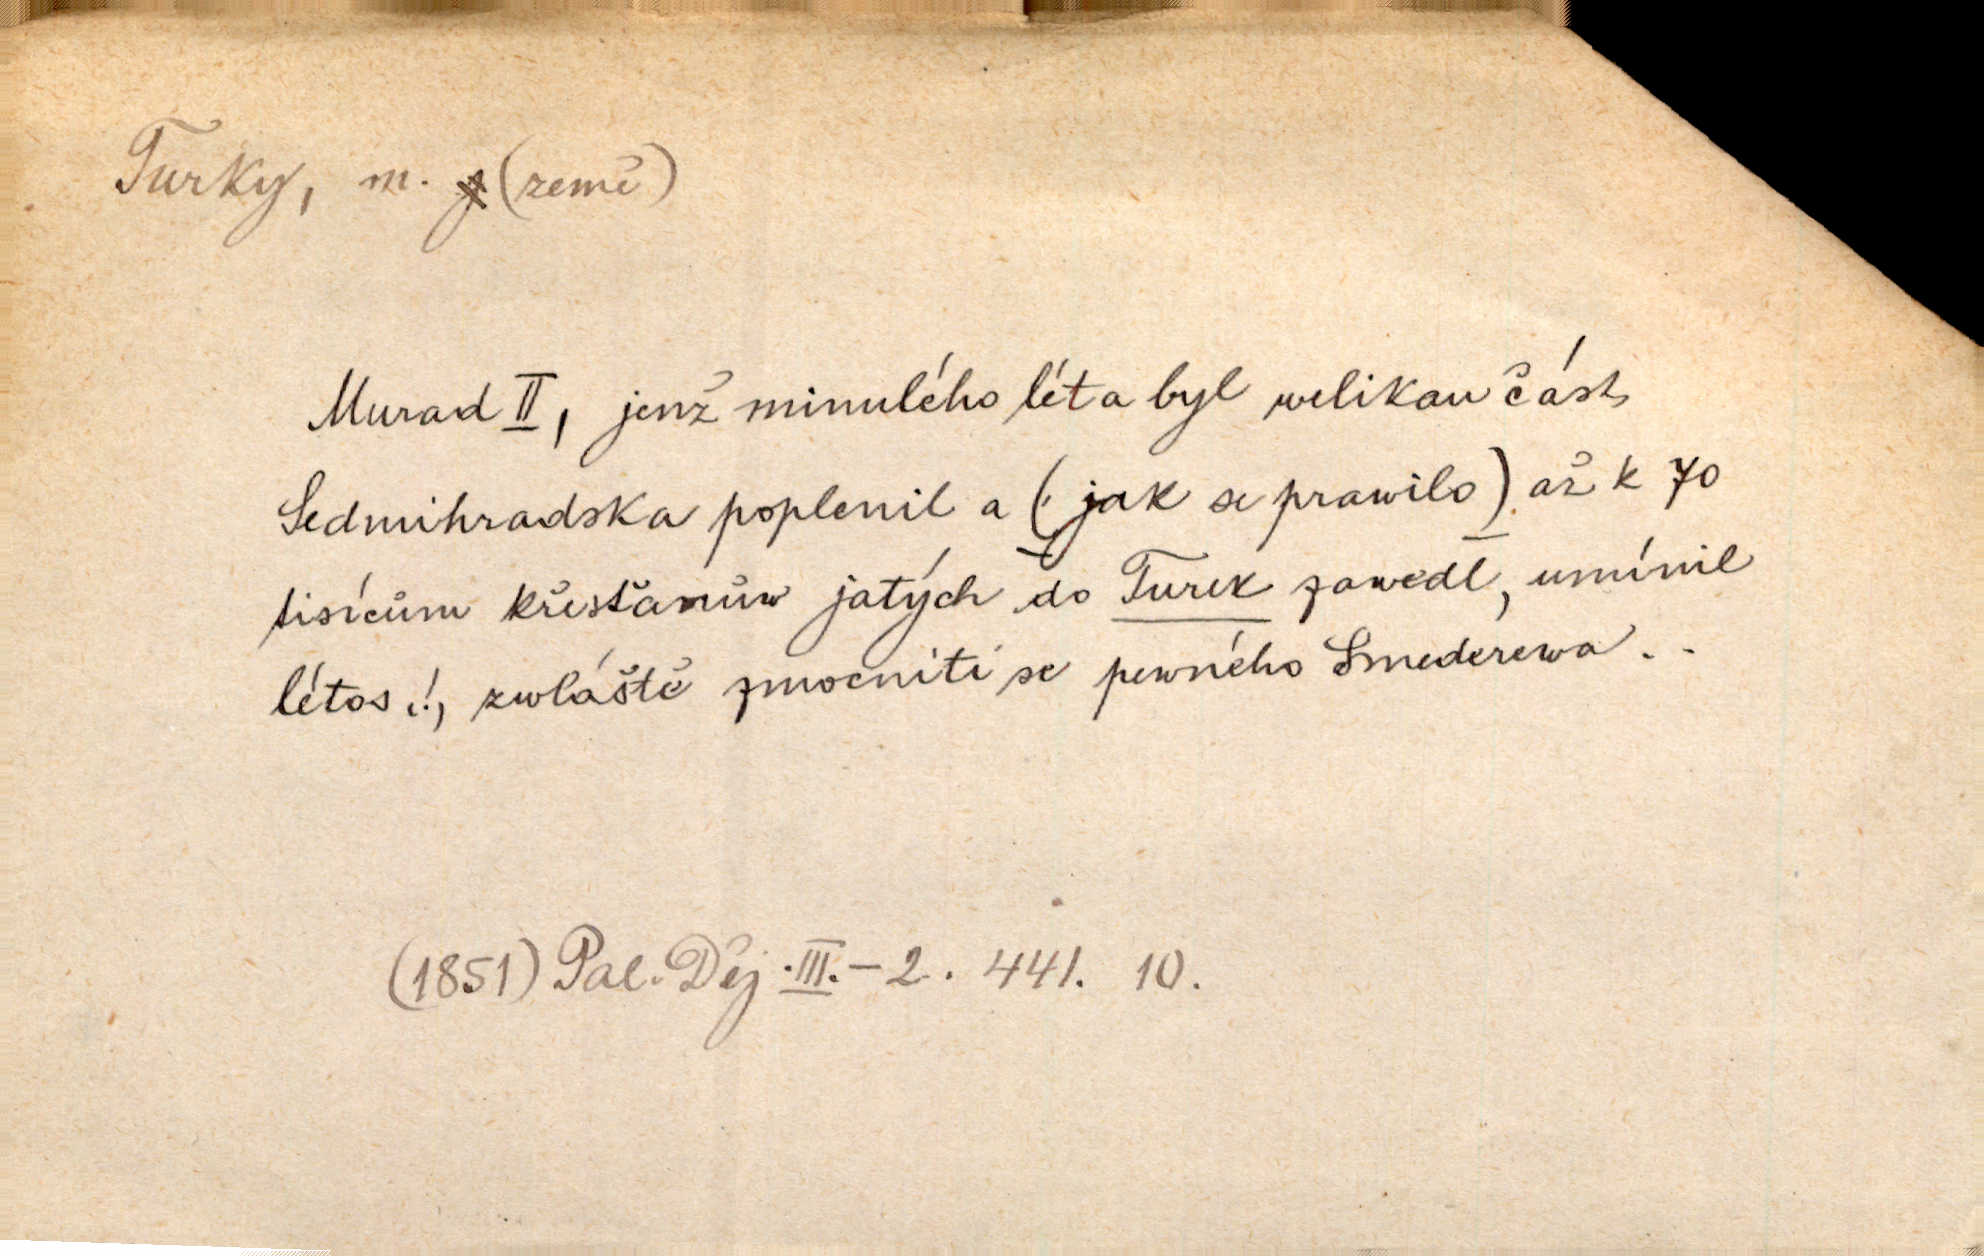 Turky, m. (země)
Murad II, jenž minulého léta byl welikau část
Sedmihradska poplenil a (jak se prawilo) až k 70
tisícům křesťanůw jatých do Turek zawedl, umínil
létos!, zwláště zmocniti se pewného Smederewa..
(1851) Pal. Děj. III. - 2. 441. 10.